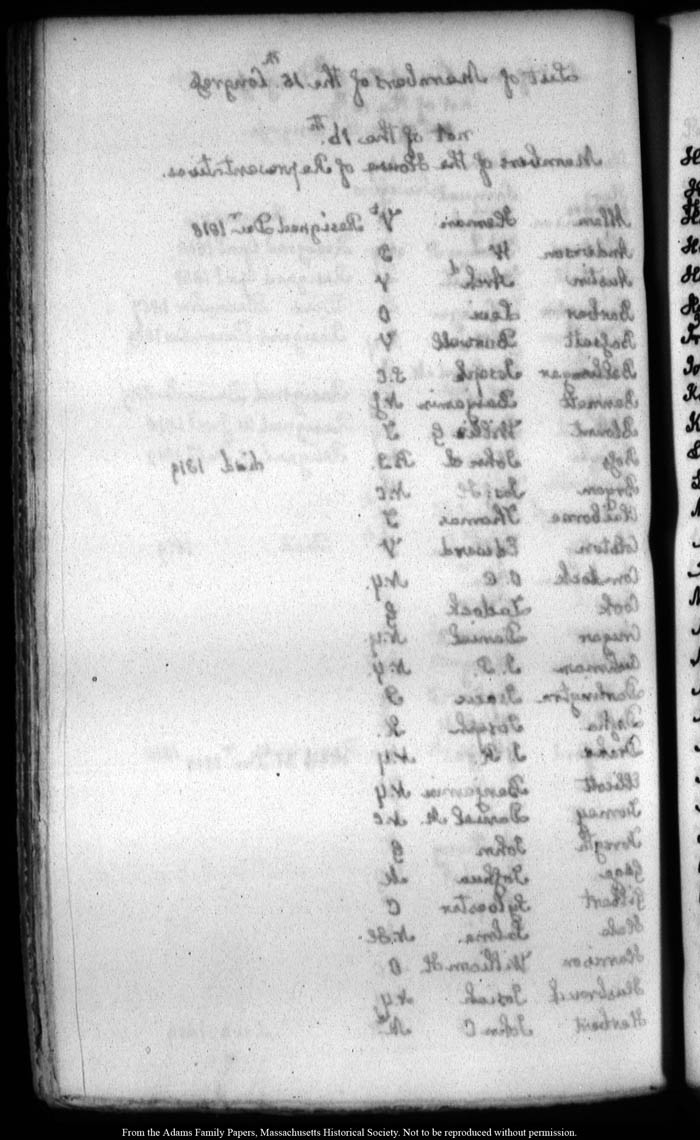 List of Members of the 15.th Congress
not of the 16.th
Members of the House of Representatives.
Allen Heman Vt Resigned Decr 1818
Anderson W. P
Austin Archd V
Barber Levi O
Bassett Burwell V
Bellinger Joseph S.C
Bennett Benjamin N.J
Blount Willie G T
Boss John L R.I. died 1819
Bryan Jos: H N.C
Claiborne Thomas T
Colston Edward V
Comstock O C N.Y
Cook Zadock G
Cruger Daniel N.Y
Cushman J. P. N.Y.
Darlington Isaac P
Desha Joseph K.
Drake J. R N.Y
Ellicott Benjamin N.Y
Forney Daniel M. N.C
Forsyth John G
Gage Joshua M
Gilbert Sylvester C
Hale Salma N.H.
Harrison William H O
Hasbrouck Josiah N.Y
Herbert John C Md
From the Adams Family Papers, Massachusetts Historical Society. Not to be reproduced without permission.